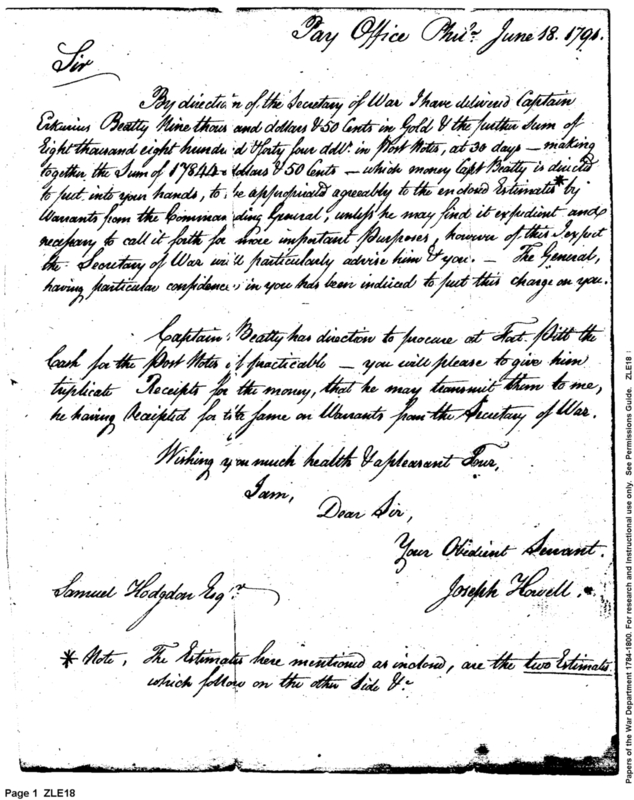 Pay Office Phila. June 18. 1791.
Sir
By direction of the Secretary of War I have delivered Captain
Erkurius Beatty Nine thousand dollars & 50 Cents in Gold & the further Sum of
Eight thousand eight hundred & forty four doll.s in Post Notes, at 30 days – making
together the Sum of 17844 dollars & 50 Cents – which money Capt Beatty is directed
to put into your hands, to be appropriated agreeably to the enclosed Estimates * by
Warrants from the Commanding General, unless he may find it expedient and
necessary to call it forth for more important Purposes, however of this I expect
the Secretary of War will particularly advise him & you. – The General,
having particular confidence in you has been induced to put this charge on you.
Captain Beatty has direction to procure at Fort. Pitt the
Cash for the Post Notes if practicable – you will please to give him
triplicate Receipts for the money, that he may transmit them to me,
he having Receipted for the same on Warrants from the Secretary of War.
Wishing you much health & a pleasant Tour,
I am,
Dear Sir,
Your Obedient Servant.
Joseph Howell.
Samuel Hodgdon Esqr
* Note, The Estimates here mentioned as inclosed, are the two Estimates
which follow on the other Side &c
Page 1 ZLE18
Papers of the War Department 1784-1800. For research and instructional use only. See Permissions Guide. ZLE18